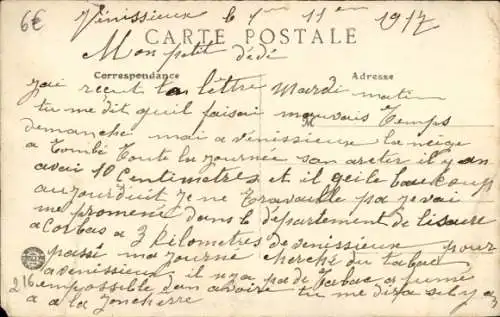 6€
Vénissieux le 11 1917
CARTE POSTALE
Mon petit dédé
Correspondance
Adresse
jai reçut ta lettre Mardi matin
tu me dit quil faisai mauvais Temps
M
demanche mai a vénissieux la neige
a tombé Toute la journee san areter il y an
avai 10 Centimetres et il gele baucoup
aujourduit je ne Travaille pa je vai
me promené dans le département de lisaere
a Corbas a 3 kilometres de venissieux pour
passé ma journe cherché du tabac
a venissieux il nya pa de Tabac a fumé
216
empossible dan avoire tu me dira sel y a
a a la Joncherre